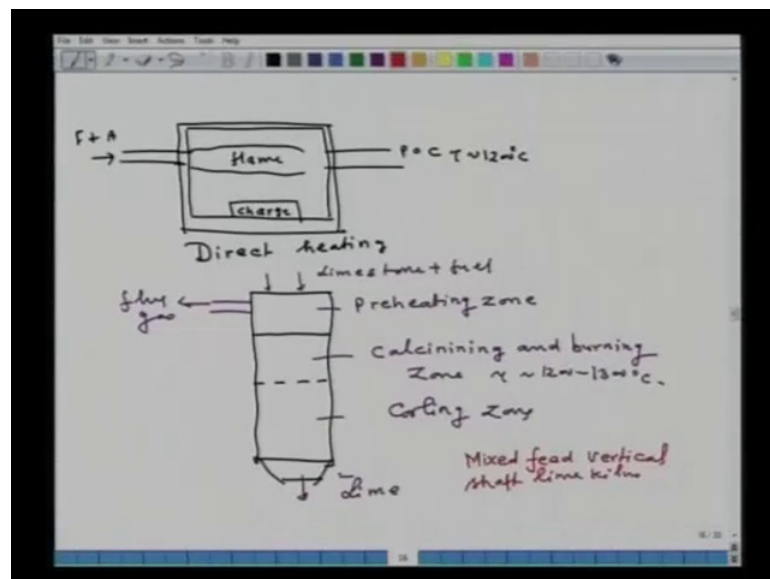 File Edit View Insert Actions Tools Help
F + A
flame
P O C T ~ 1200°C
charge
Direct heating
Limestone + fuel
flue gas
Preheating zone
Calcinining and burning
zone T ~ 1200-1300°C.
Cooling Zone
Lime
Mixed feed vertical
shaft lime kiln
16